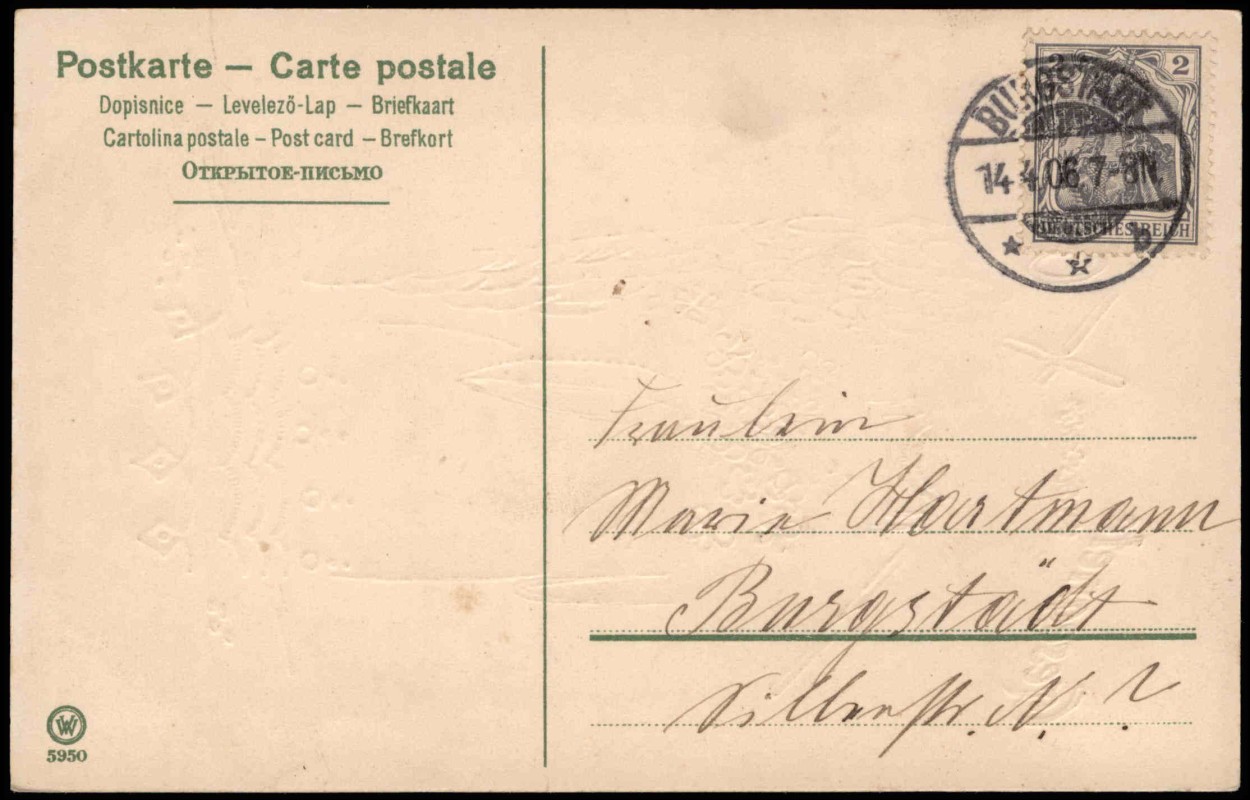 Postkarte — Carte postale
Dopisnice — Levelező-Lap — Briefkaart
Cartolina postale — Post card — Brefkort
Открытое-письмо
2
BURGSTÄDT
14.4.06 7-8N.
b
DEUTSCHES REICH
Fräulein
Marie Hartmann
Burgstädt
N. ?
W W
5950